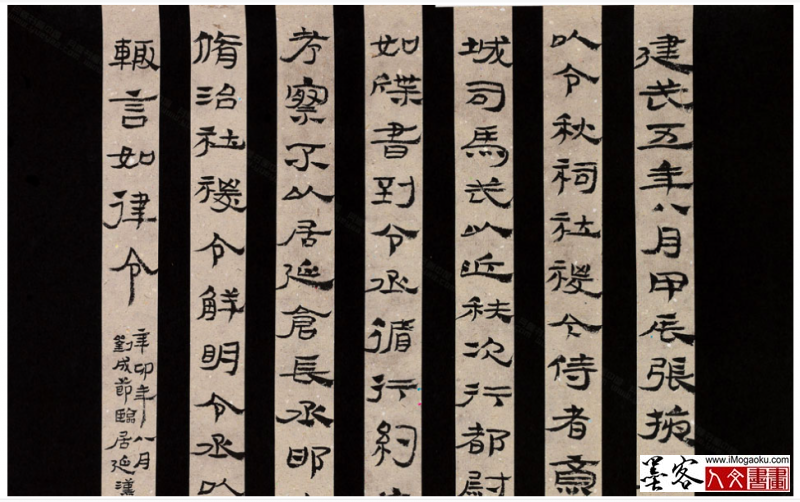 建武五年八月甲辰張掖
以令秋祠社稷今侍者齋
城司馬武以近秩次行都尉
如牒書到令丞循行約
考察不以居延倉長丞邯
脩治社稷令鮮明令丞以
輒言如律令
辛卯年八月
劉成節臨居延漢
www.iMogaoku.com
墨客
人文書畫